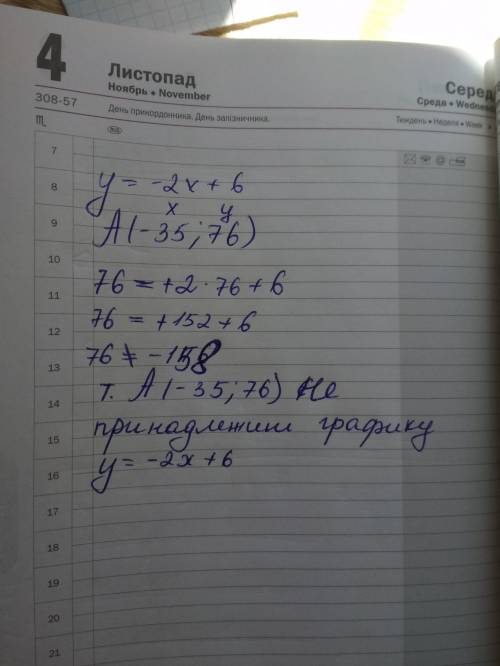 4
Листопад
Ноябрь • November
Серед
Среда • Wednes
308-57
День прикордонника. День залізничника.
Тиждень • Неделя • Week
7
8
y = -2x + 6
x y
9
A(-35; 76)
10
76 = +2 · 76 + 6
11
76 = +152 + 6
12
76 ≠ -158
13
т. A (-35; 76) не
14
принадлежит графику
15
y = -2x + 6
16
17
18
19
20
21